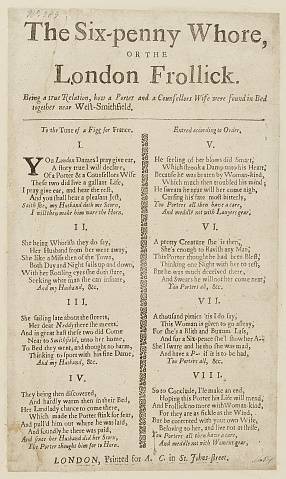 The Six-penny Whore,
OR THE
London Frollick.
Being a true Relation, how a Porter and a Counsellors Wife were found in Bed
together near West-Smithfield.
To the Tune of a Figg for France.
I.
YOu London Dames I pray give ear,
A story true I will declare,
Of a Porter & a Counsellors Wife
These two did live a gallant Life,
I pray give ear, and hear the rest,
And you shall hear a pleasant Jest,
Saith she, my Husband doth me Scorn,
I will then make him wear the Horn.
II.
She being Whorish they do say,
Her Husband from her went away,
She like a Miss then of the Town,
Both Day and Night sails up and down,
With her Rowling eyes she doth stare,
Seeking what man she can insnare,
And my Husband, &c.
III.
She sailing late about the streets,
Her dear Noddy there she meets,
And in great hast these two did Come
Near to Smithfield, unto her home,
To Bed they went, and thought no harm,
Thinking to sport with his fine Dame,
And my Husband, &c.
IV.
They being then discovered,
And hardly warm then in their Bed,
Her Landlady chance to come there,
Which made the Porter stink for fear,
And pull'd him out where he was laid,
And soundly he there was paid,
And since her Husband did her Scorn,
The Porter thought him for to Horn.
Entred according to Order,
V.
He feeling of her blows did Smart,
Which strook a Damp unto his Heart,
Because he was beaten by Woman-kind,
Which much then troubled his mind;
He swears he near will her come nigh,
Cursing his fate most bitterly,
Tho Porters all then have a care,
And meddle not with Lawyers gear,
VI.
A pretty Creature she is then,
She's enough to Ravish any Man;
This Porter thought he had been Blest,
Thinking one Night with her to rest,
But he was much deceived there,
And swears he will nother come near,
Tho Porters all, &c.
VII.
A thousand pitties 'tis I do say,
This Woman is given to go astray;
For she's a Brisk and Buxom Lass,
And for a Six-pence she'l show her A--
She I warry and he tho she was mad,
And have a P-- if it is to be had,
Tho Porters all, &c.
VIII.
So to Conclude, I'le make an end,
Hoping this Porter his Life will mend,
And Frollick no more with Woman-kind,
For they are as fickle as the Wind,
But be contented with your own Wife,
Beloving to her, and live not at strife,
Tho Porters all then have a care,
And meddle not with Womens gear.
LONDON, Printed for A. C. in St. Johns-street.